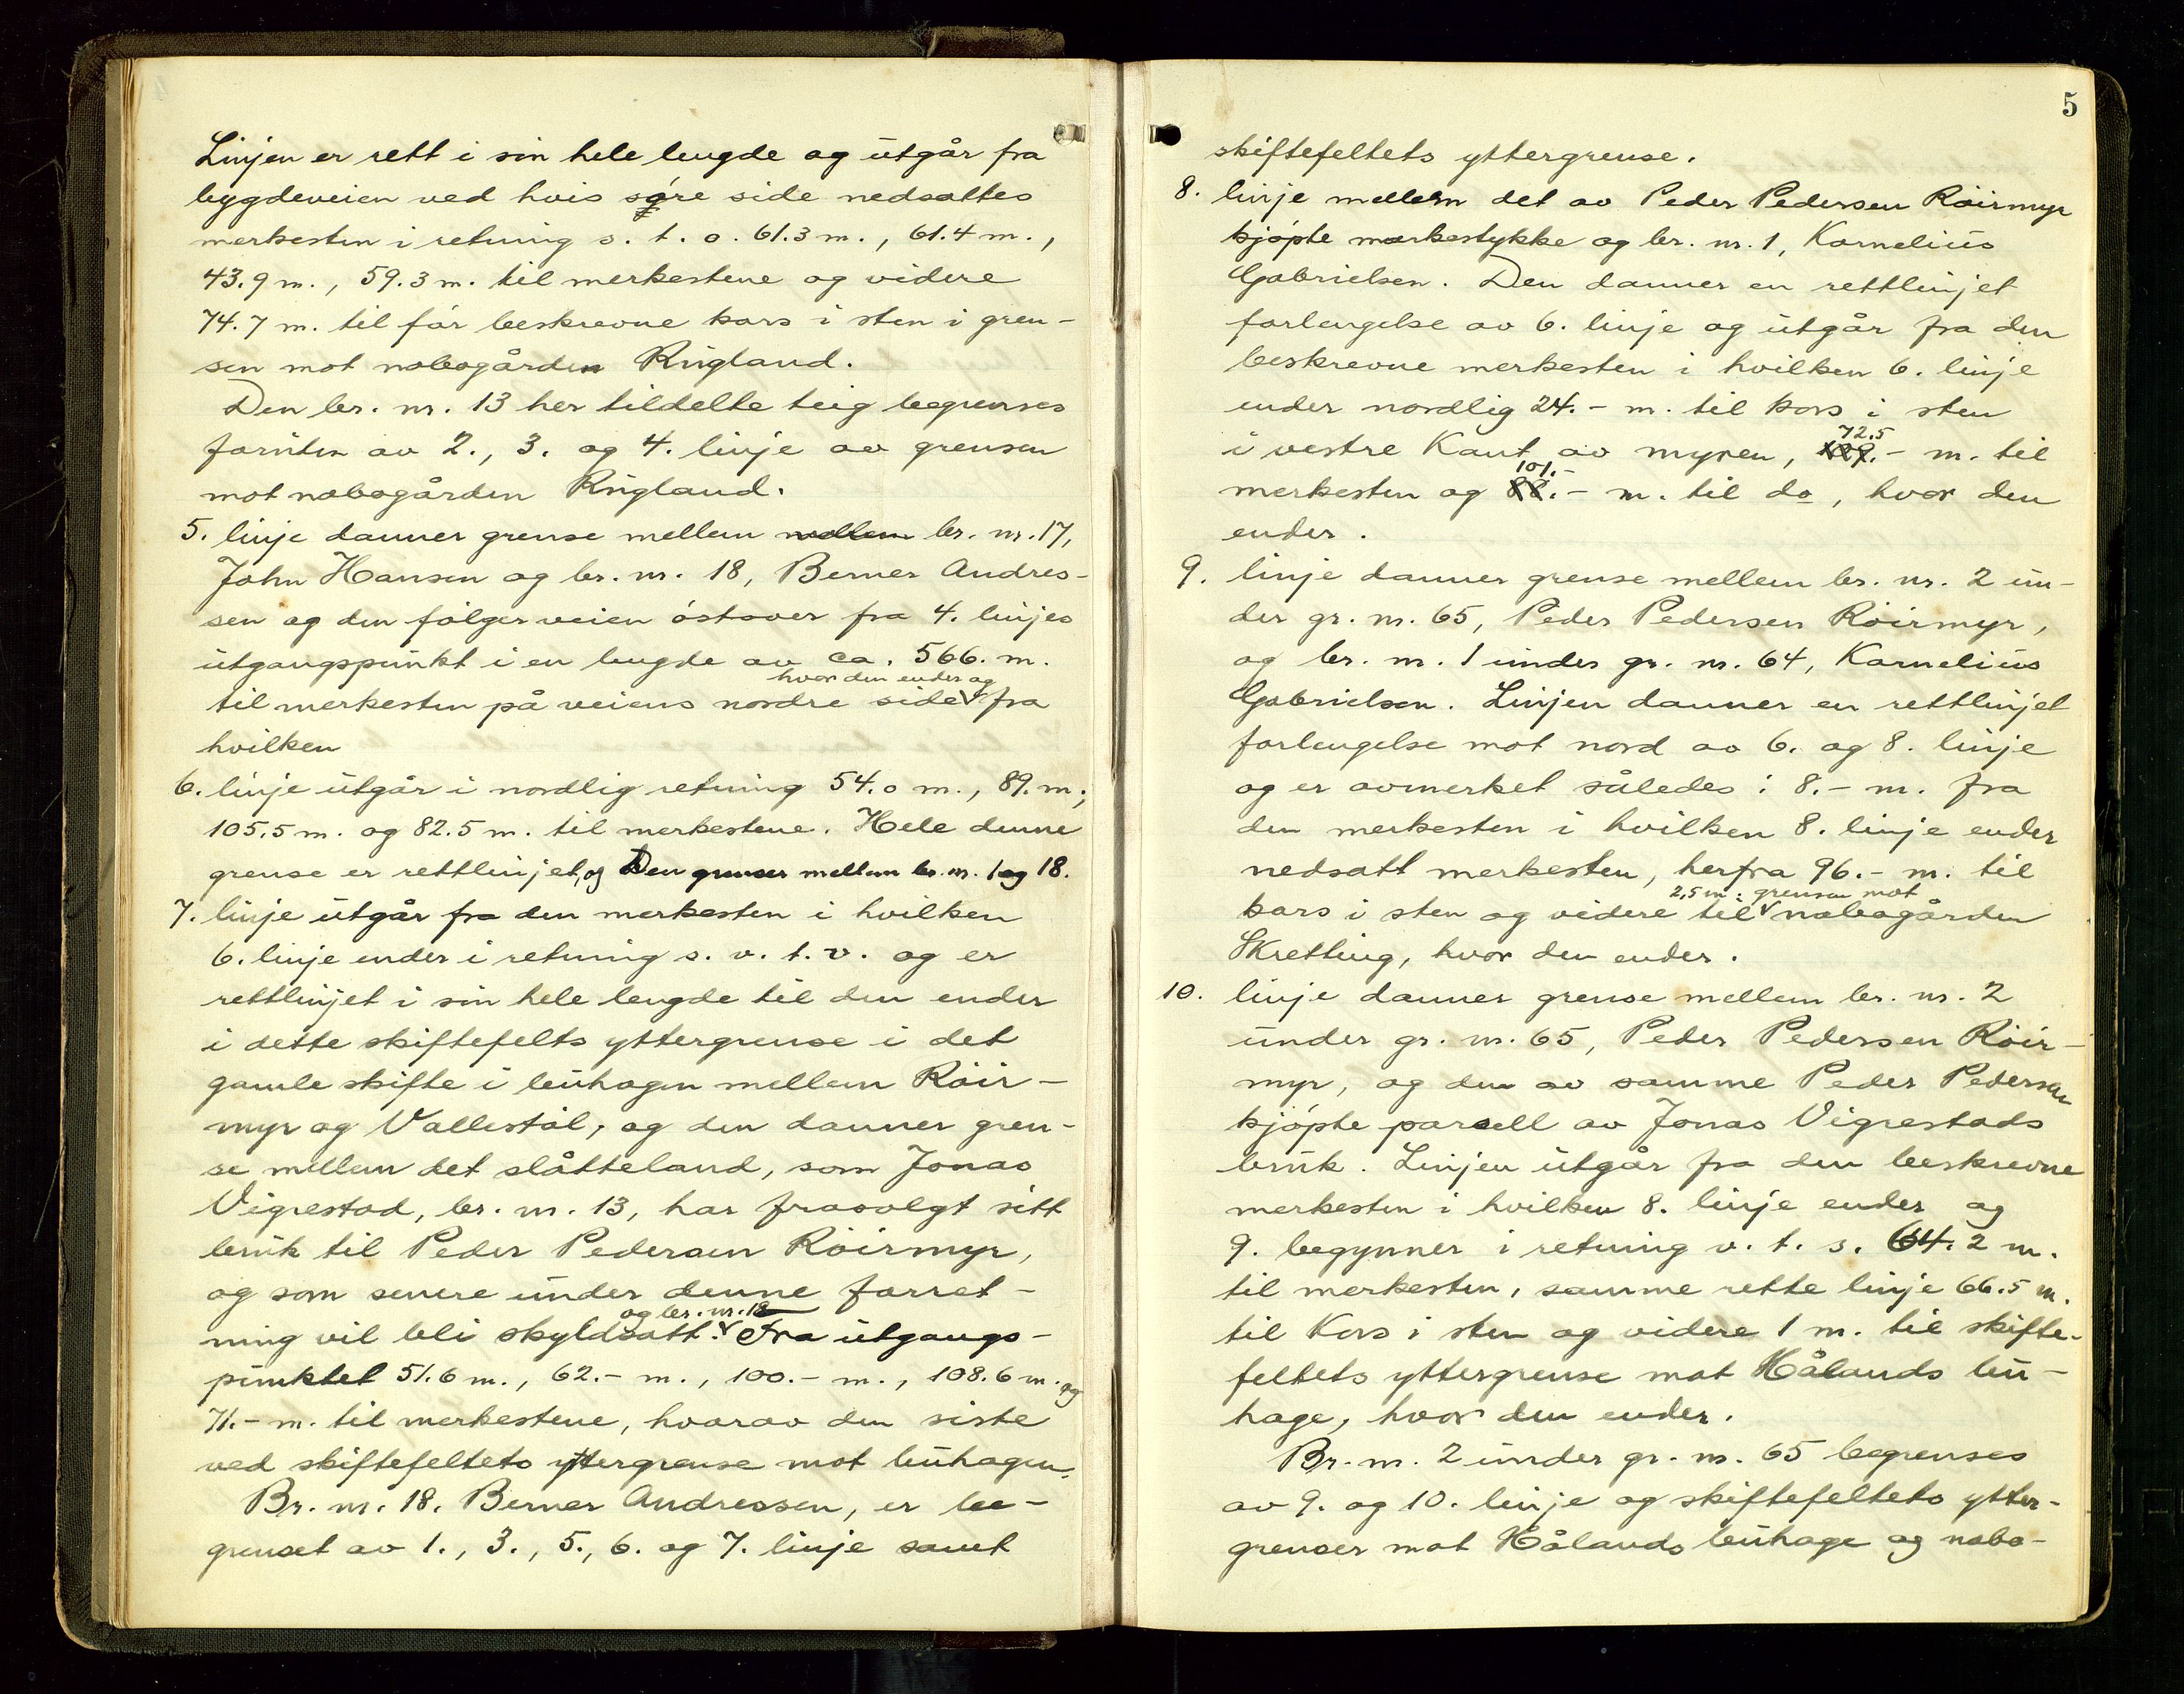 Linjen er rett i sin hele lengde og utgår fra
bygdeveien ved hvis søre side nedsattes
merkesten i retning s. t. o. 61.3 m., 61.4 m.,
43.9 m., 59.3 m. til merkestene og videre
74.7 m. til før beskrevne kors i sten i gren-
sen mot nabogården Rugland.
Den br. nr. 13 her tildelte teig begrenses
foruten av 2., 3. og 4. linje av grensen
mot nabogården Rugland.
5. linje danner grense mellem mellem br. nr. 17,
John Hansen og br. nr. 18, Berner Andres-
sen og den følger veien østover fra 4. linjes
utgangspunkt i en lengde av ca. 566. m.
hvor den ender og
til merkesten på veiens nordre side fra
hvilken
6. linje utgår i nordlig retning 54.0 m., 89. m.,
105.5 m. og 82.5 m. til merkestene. Hele denne
grense er rettlinjet, og Den grenser mellem br. nr. 1 og 18.
7. linje utgår fra den merkesten i hvilken
6. linje ender i retning s. v. t. v. og er
rettlinjet i sin hele lengde til den ender
i dette skiftefelts yttergrense i det
gamle skifte i buhagen mellem Røir-
myr og Vallestøl, og den danner gren-
se mellem det slåtteland, som Jonas
Vigrestad, br. nr. 13, har frasolgt sitt
bruk til Peder Pedersen Røirmyr,
og som senere under denne forret-
og br. nr. 18
ning vil bli skyldsatt. Fra utgangs-
punktet 51.6 m., 62.- m., 100.- m., 108.6 m. og
71.- m. til merkestene, hvorav den siste
ved skiftefeltets yttergrense mot buhagen.
Br. nr. 18. Berner Andressen, er be-
grenset av 1., 3., 5., 6. og 7. linje samt
5
skiftefeltets yttergrense.
8. linje mellem det av Peder Pedersen Røirmyr
kjøpte markestykke og br. nr. 1, Kornelius
Gabrielsen. Den danner en rettlinjet
forlengelse av 6. linje og utgår fra den
beskrevne merkesten i hvilken 6. linje
ender nordlig 24.- m. til kors i sten
72.5
i vestre Kant av myren, 109.- m. til
101.-
merkesten og 88.- m. til do, hvor den
ender.
9. linje danner grense mellem br. nr. 2 un-
der gr. nr. 65, Peder Pedersen Røirmyr,
og br. nr. 1 under gr. nr. 64, Kornelius
Gabrielsen. Linjen danner en rettlinjet
forlengelse mot nord av 6. og 8. linje
og er avmerket således: 8.- m. fra
den merkesten i hvilken 8. linje ender
nedsatt merkesten, herfra 96.- m. til
2,5 m. grensen mot
kors i sten og videre til nabogården
Skretting, hvor den ender.
10. linje danner grense mellem br. nr. 2
under gr. nr. 65, Peder Pedersen Røir-
myr, og den av samme Peder Pedersen
kjøpte parsell av Jonas Vigrestads
bruk. Linjen utgår fra den beskrevne
merkesten i hvilken 8. linje ender og
9. begynner i retning v. t. s. 64.2 m.
til merkesten, samme rette linje 66.5 m.
til Kors i sten og videre 1 m. til skifte-
feltets yttergrense mot Hålands bu-
hage, hvor den ender.
Br. nr. 2 under gr. nr. 65 begrenses
av 9. og 10. linje og skiftefeltets ytter-
grenser mot Hålands buhage og nabo-